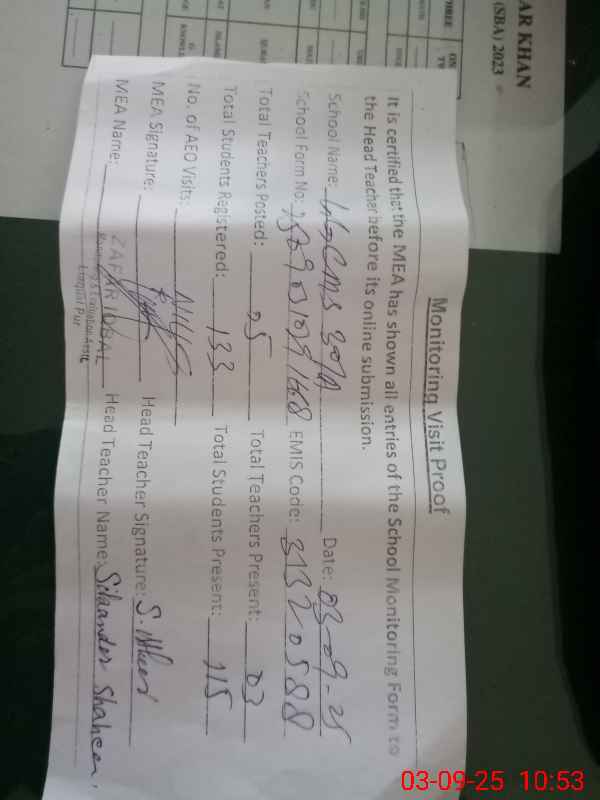 AR KHAN
(SBA) 2023
THREE
ON
TW
Monitoring Visit Proof
It is certified that the MEA has shown all entries of the School Monitoring Form to
the Head Teacher before its online submission.
School Name: CMS Date: 03-09-25
School Form No: EMIS Code: 31320588
Total Teachers Posted: 05 Total Teachers Present: 03
Total Students Registered: 133 Total Students Present: 115
No. of AEO Visits:
MEA Signature: Head Teacher Signature:
MEA Name: ZAFAR IQBAL Head Teacher Name: Sikander Shaheen
Monitoring & Evaluation Assit
03-09-25 10:53